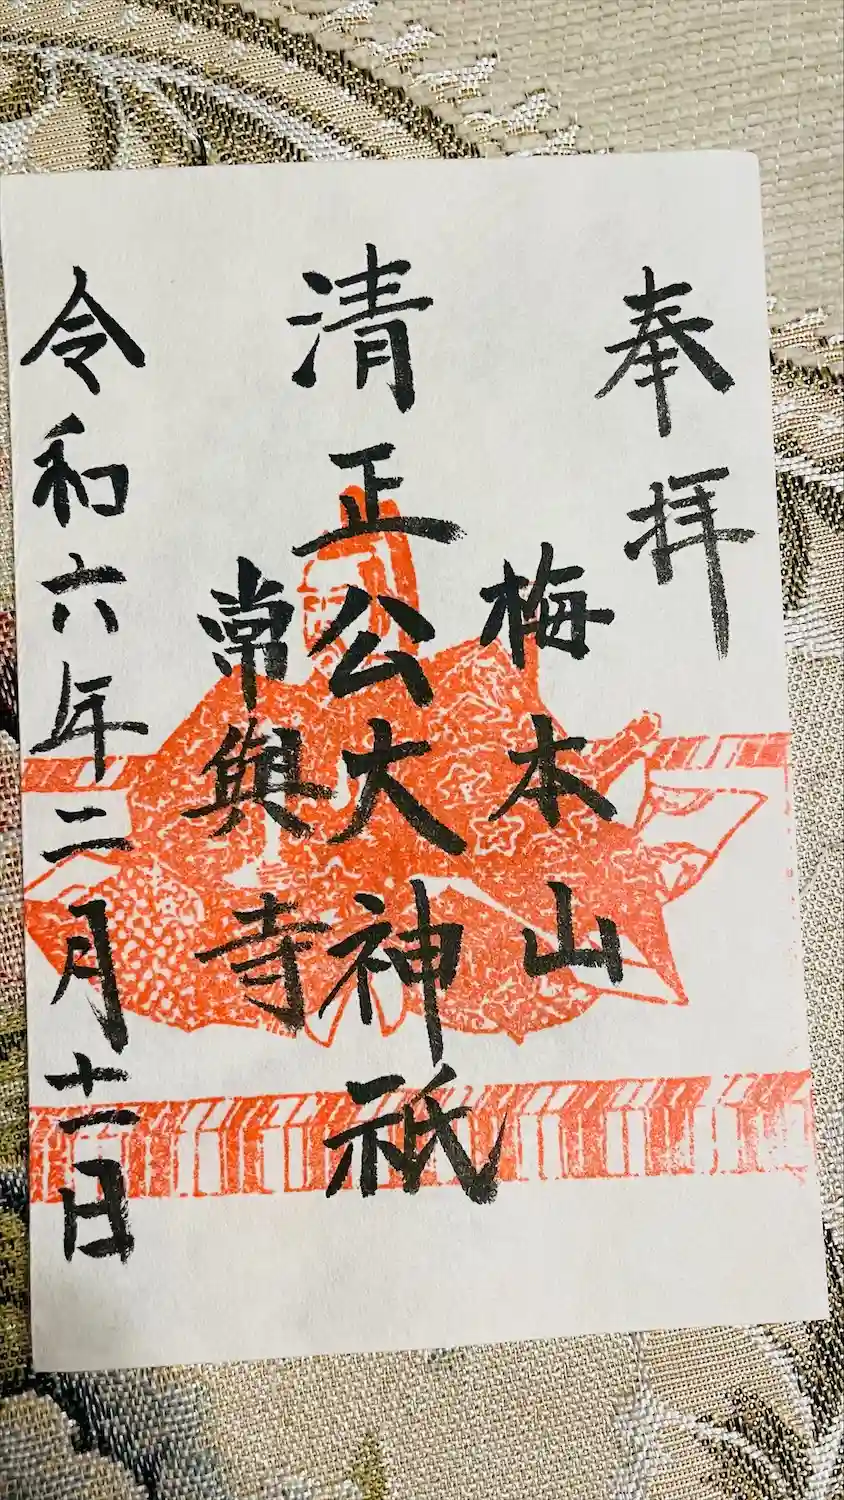 奉拝
梅本山
清正公大神祇
常與寺
令和六年二月十一日